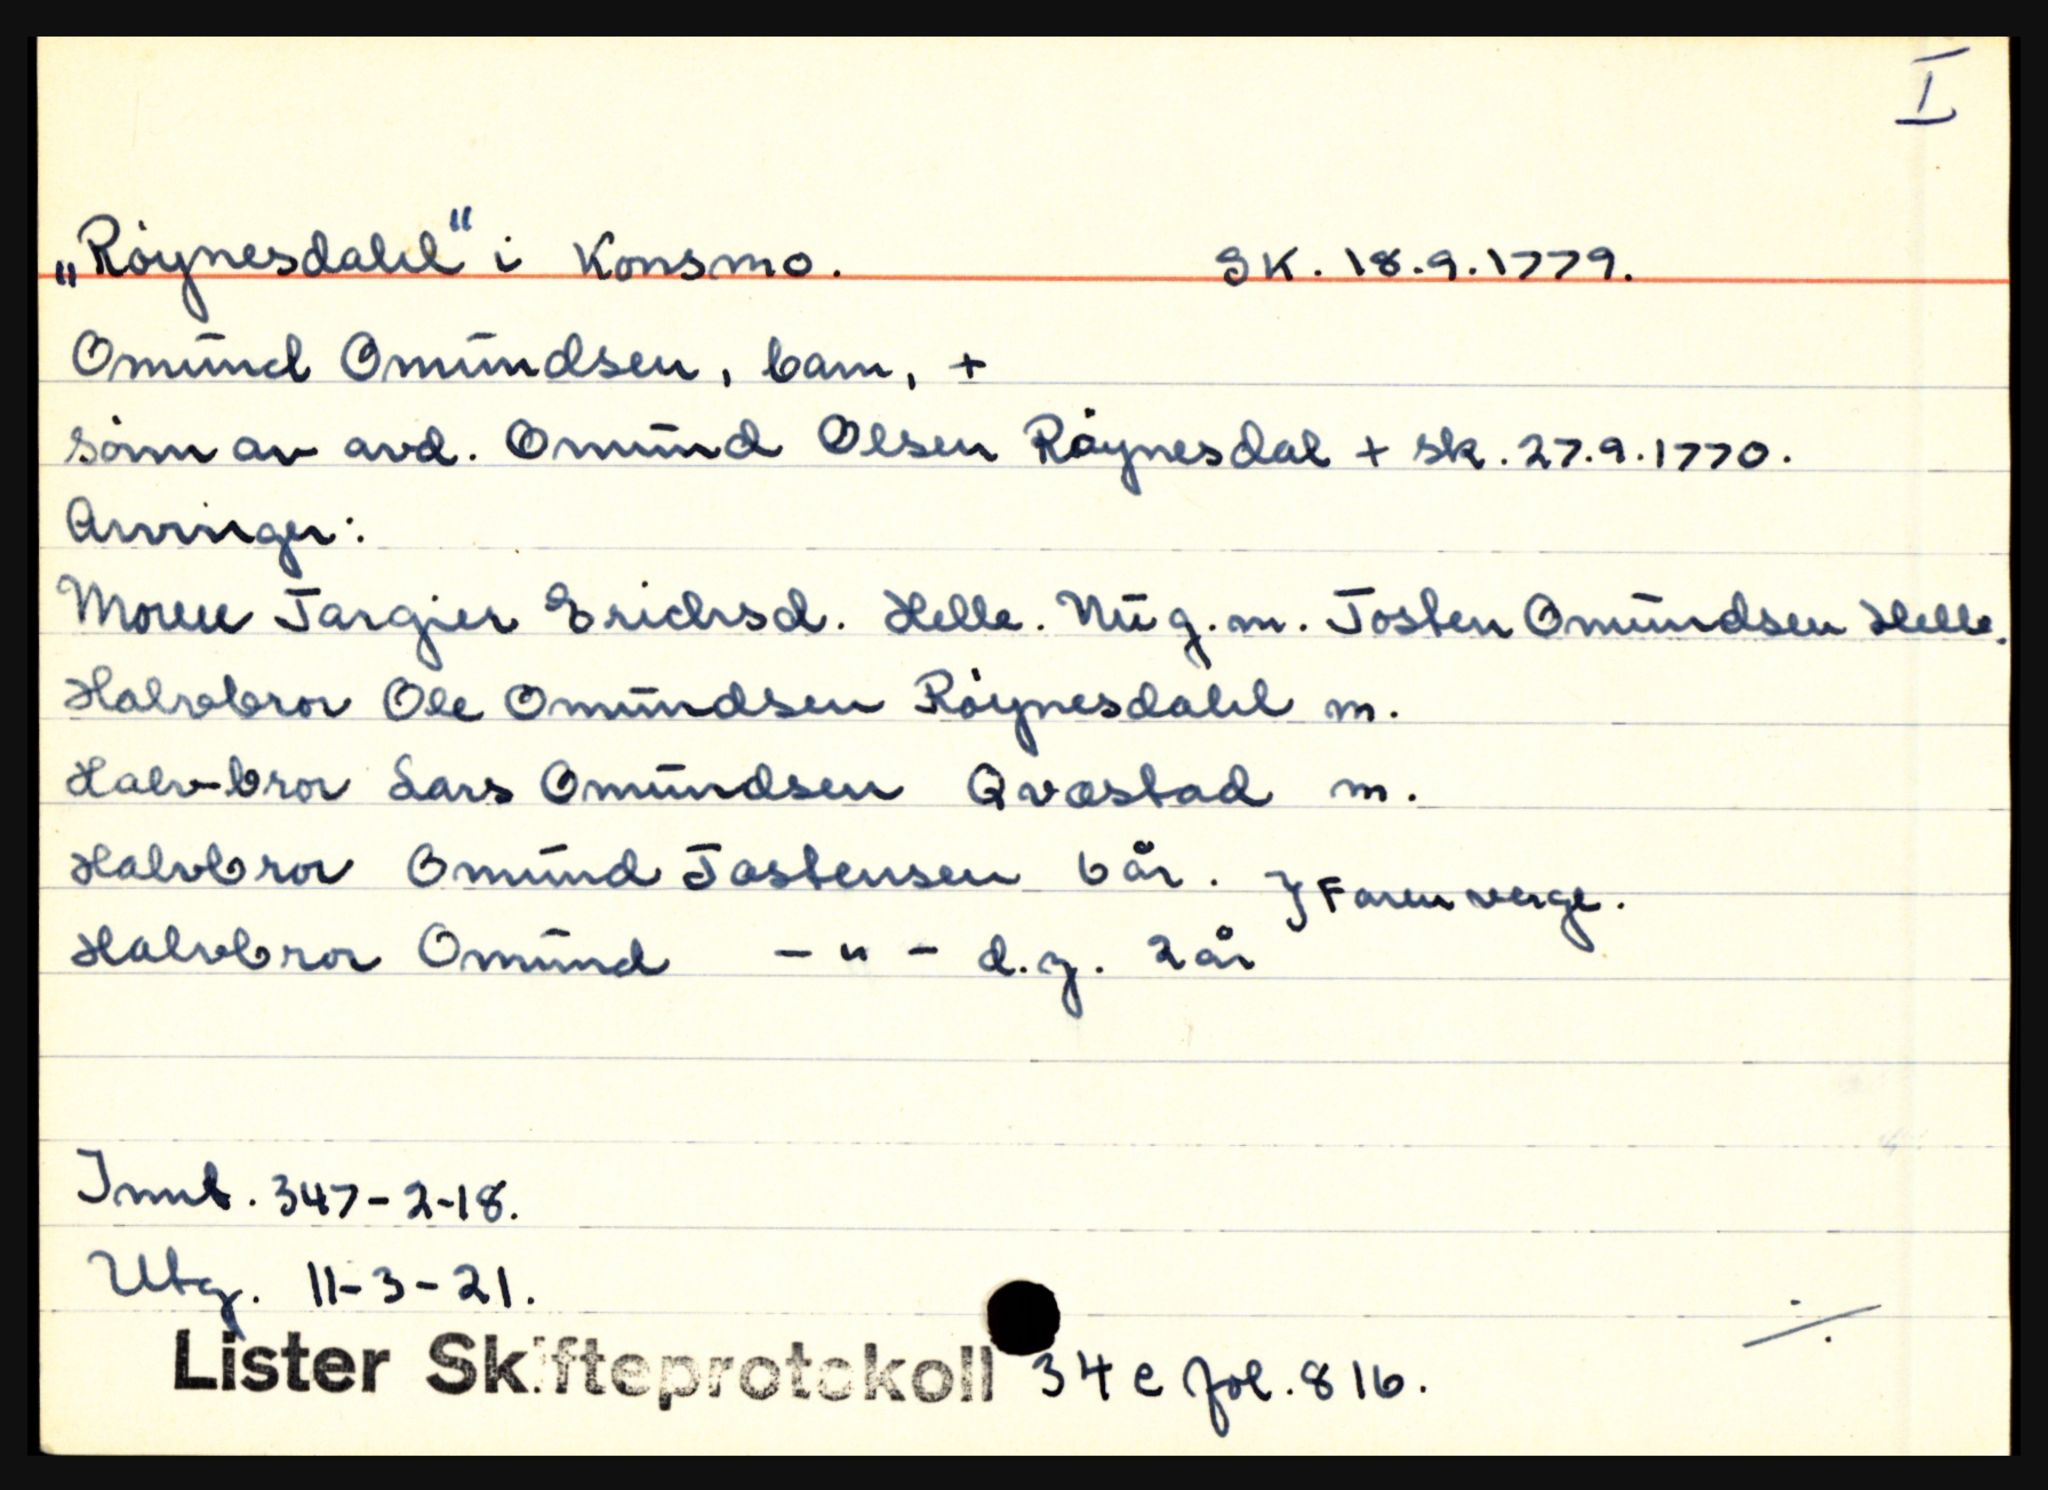 I
„Röynesdahl" i Konsmo. SK. 18.9.1779.
Omund Omundsen, barn, +
sönn av avd. Omund Olsen Röynesdal + sk. 27.9.1770.
Arvinger:
Moren Targier Erichsd. Helle. Nu g. m. Tosten Omundsen Helle.
Halvbror Ole Omundsen Röynesdahl m.
Halv-bror Lars Omundsen Qvastad m.
Halvbror Omund Tostensen 6 år. } Faren verge.
Halvbror Omund - " - d.y. 2 år
Innt. 347-2-18.
Utg. 11-3-21.
Lister Skifteprotokoll 34 e fol. 816.